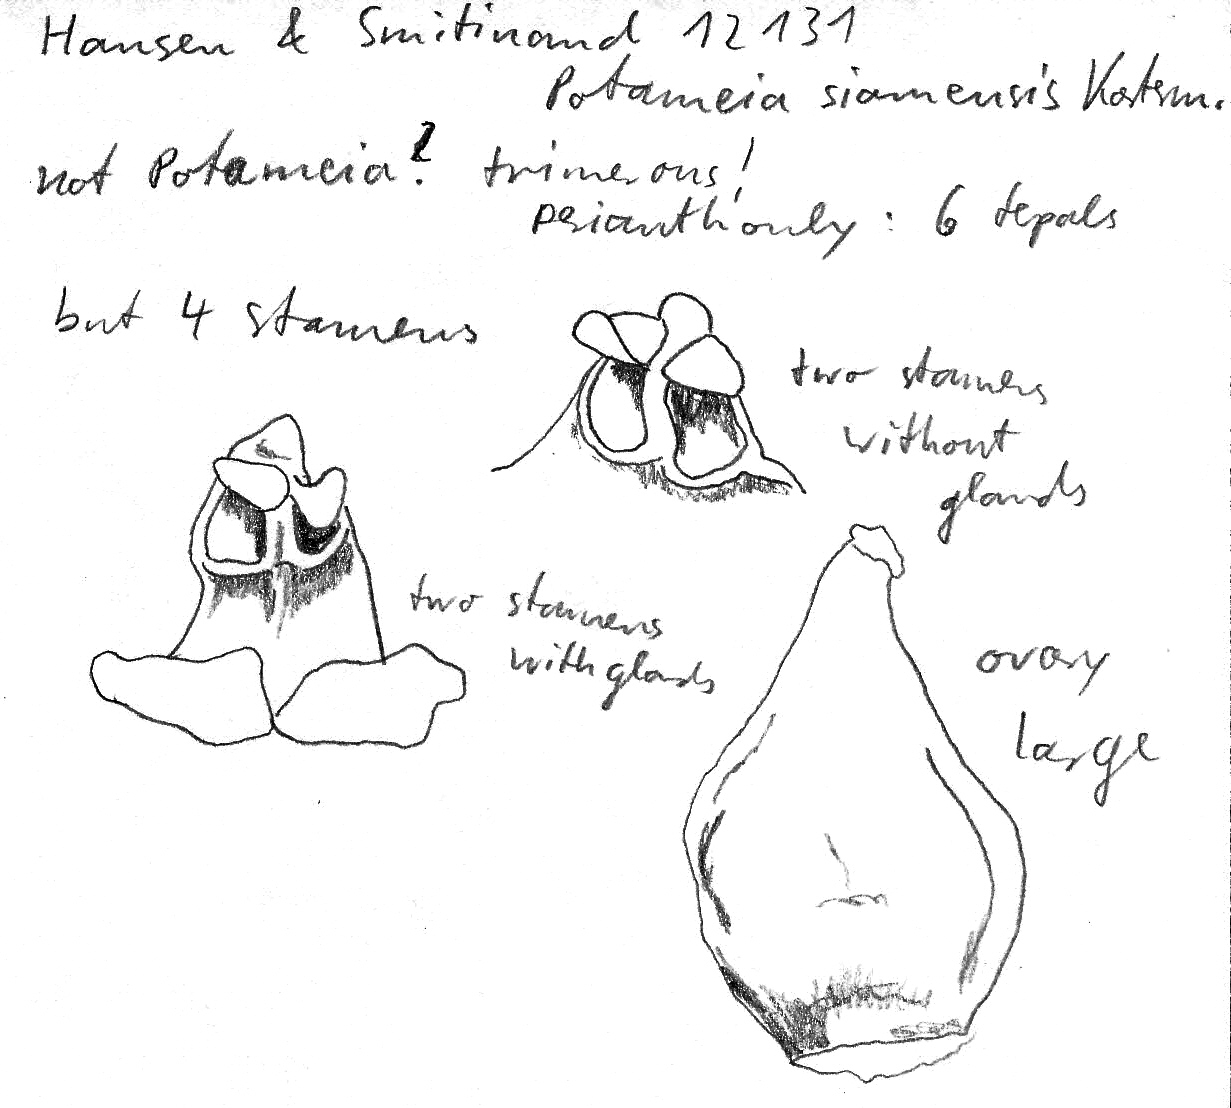 Hansen & Smitinand 12131
Potameia siamensis Kosterm.
not Potameia? trimerous!
perianth only : 6 tepals
but 4 stamens
two stamens
without
glands
two stamens
with glands
ovary
large